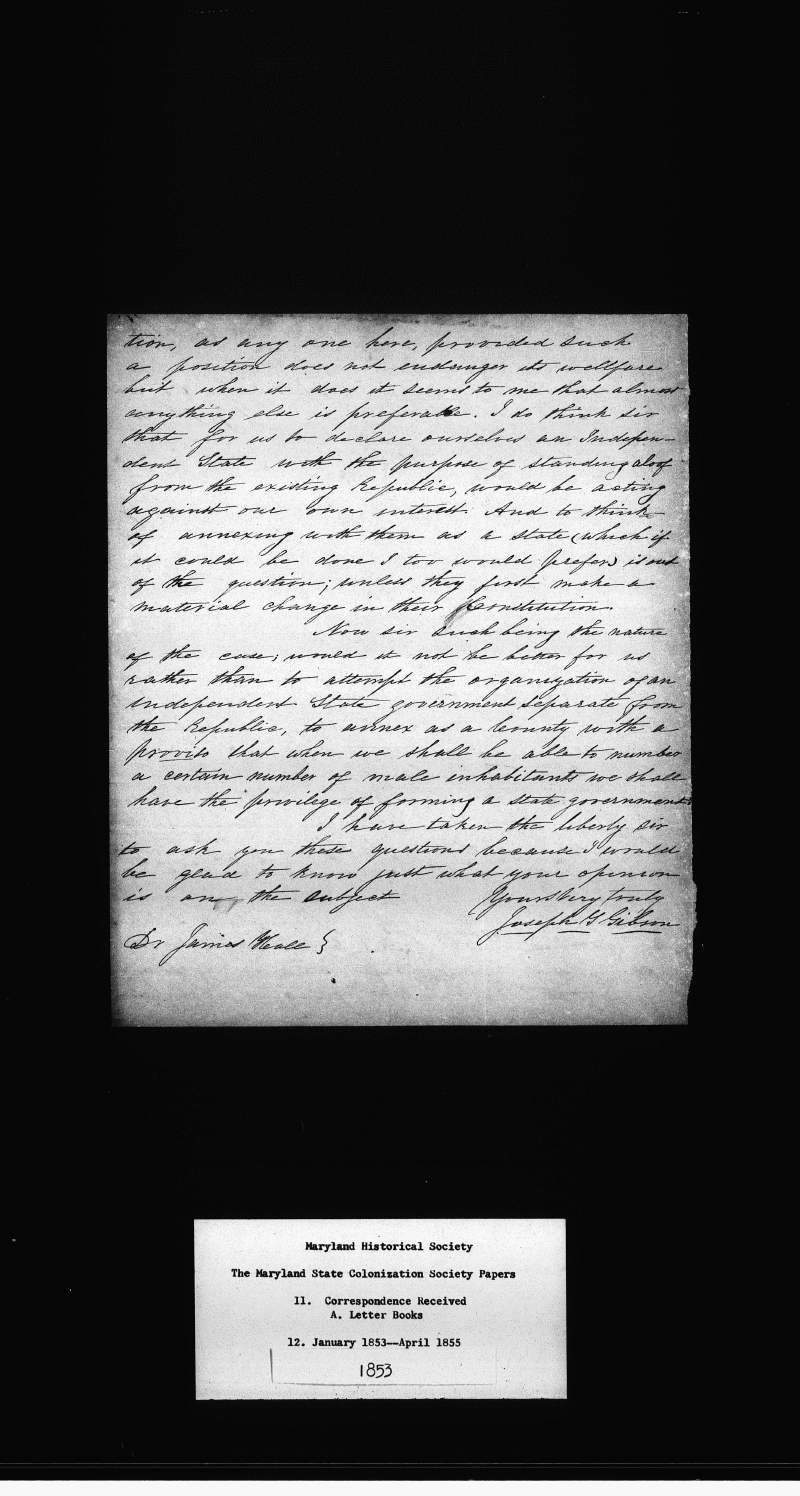 tion, as any one here, provided such
a position does not endanger its wellfare
but when it does it seems to me that almost
anything else is preferable. I do think sir
that for us to declare ourselves an Indepen-
dent State with the purpose of standing aloof
from the existing Republic, would be acting
against our own interest. And to think
of annexing with them as a state (which if
it could be done I too would prefer) is out
of the question; unless they first make a
material change in their Constitution.
Now sir such being the nature
of the case; would it not be better for us
rather than to attempt the organization of an
independent State government separate from
the Republic, to annex as a County with a
proviso that when we shall be able to number
a certain number of male inhabitants we shall
have the privilege of forming a state government.
I have taken the liberty sir
to ask you these questions because I would
be glad to know just what your opinion
is on the subject
Yours very truly
Joseph G Gibson
Dr James Hall }
Maryland Historical Society
The Maryland State Colonization Society Papers
11. Correspondence Received
A. Letter Books
12. January 1853--April 1855
1853